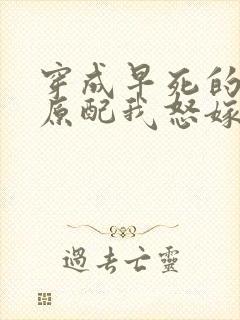 穿成早死的
原配我怒嫁
過去亡靈